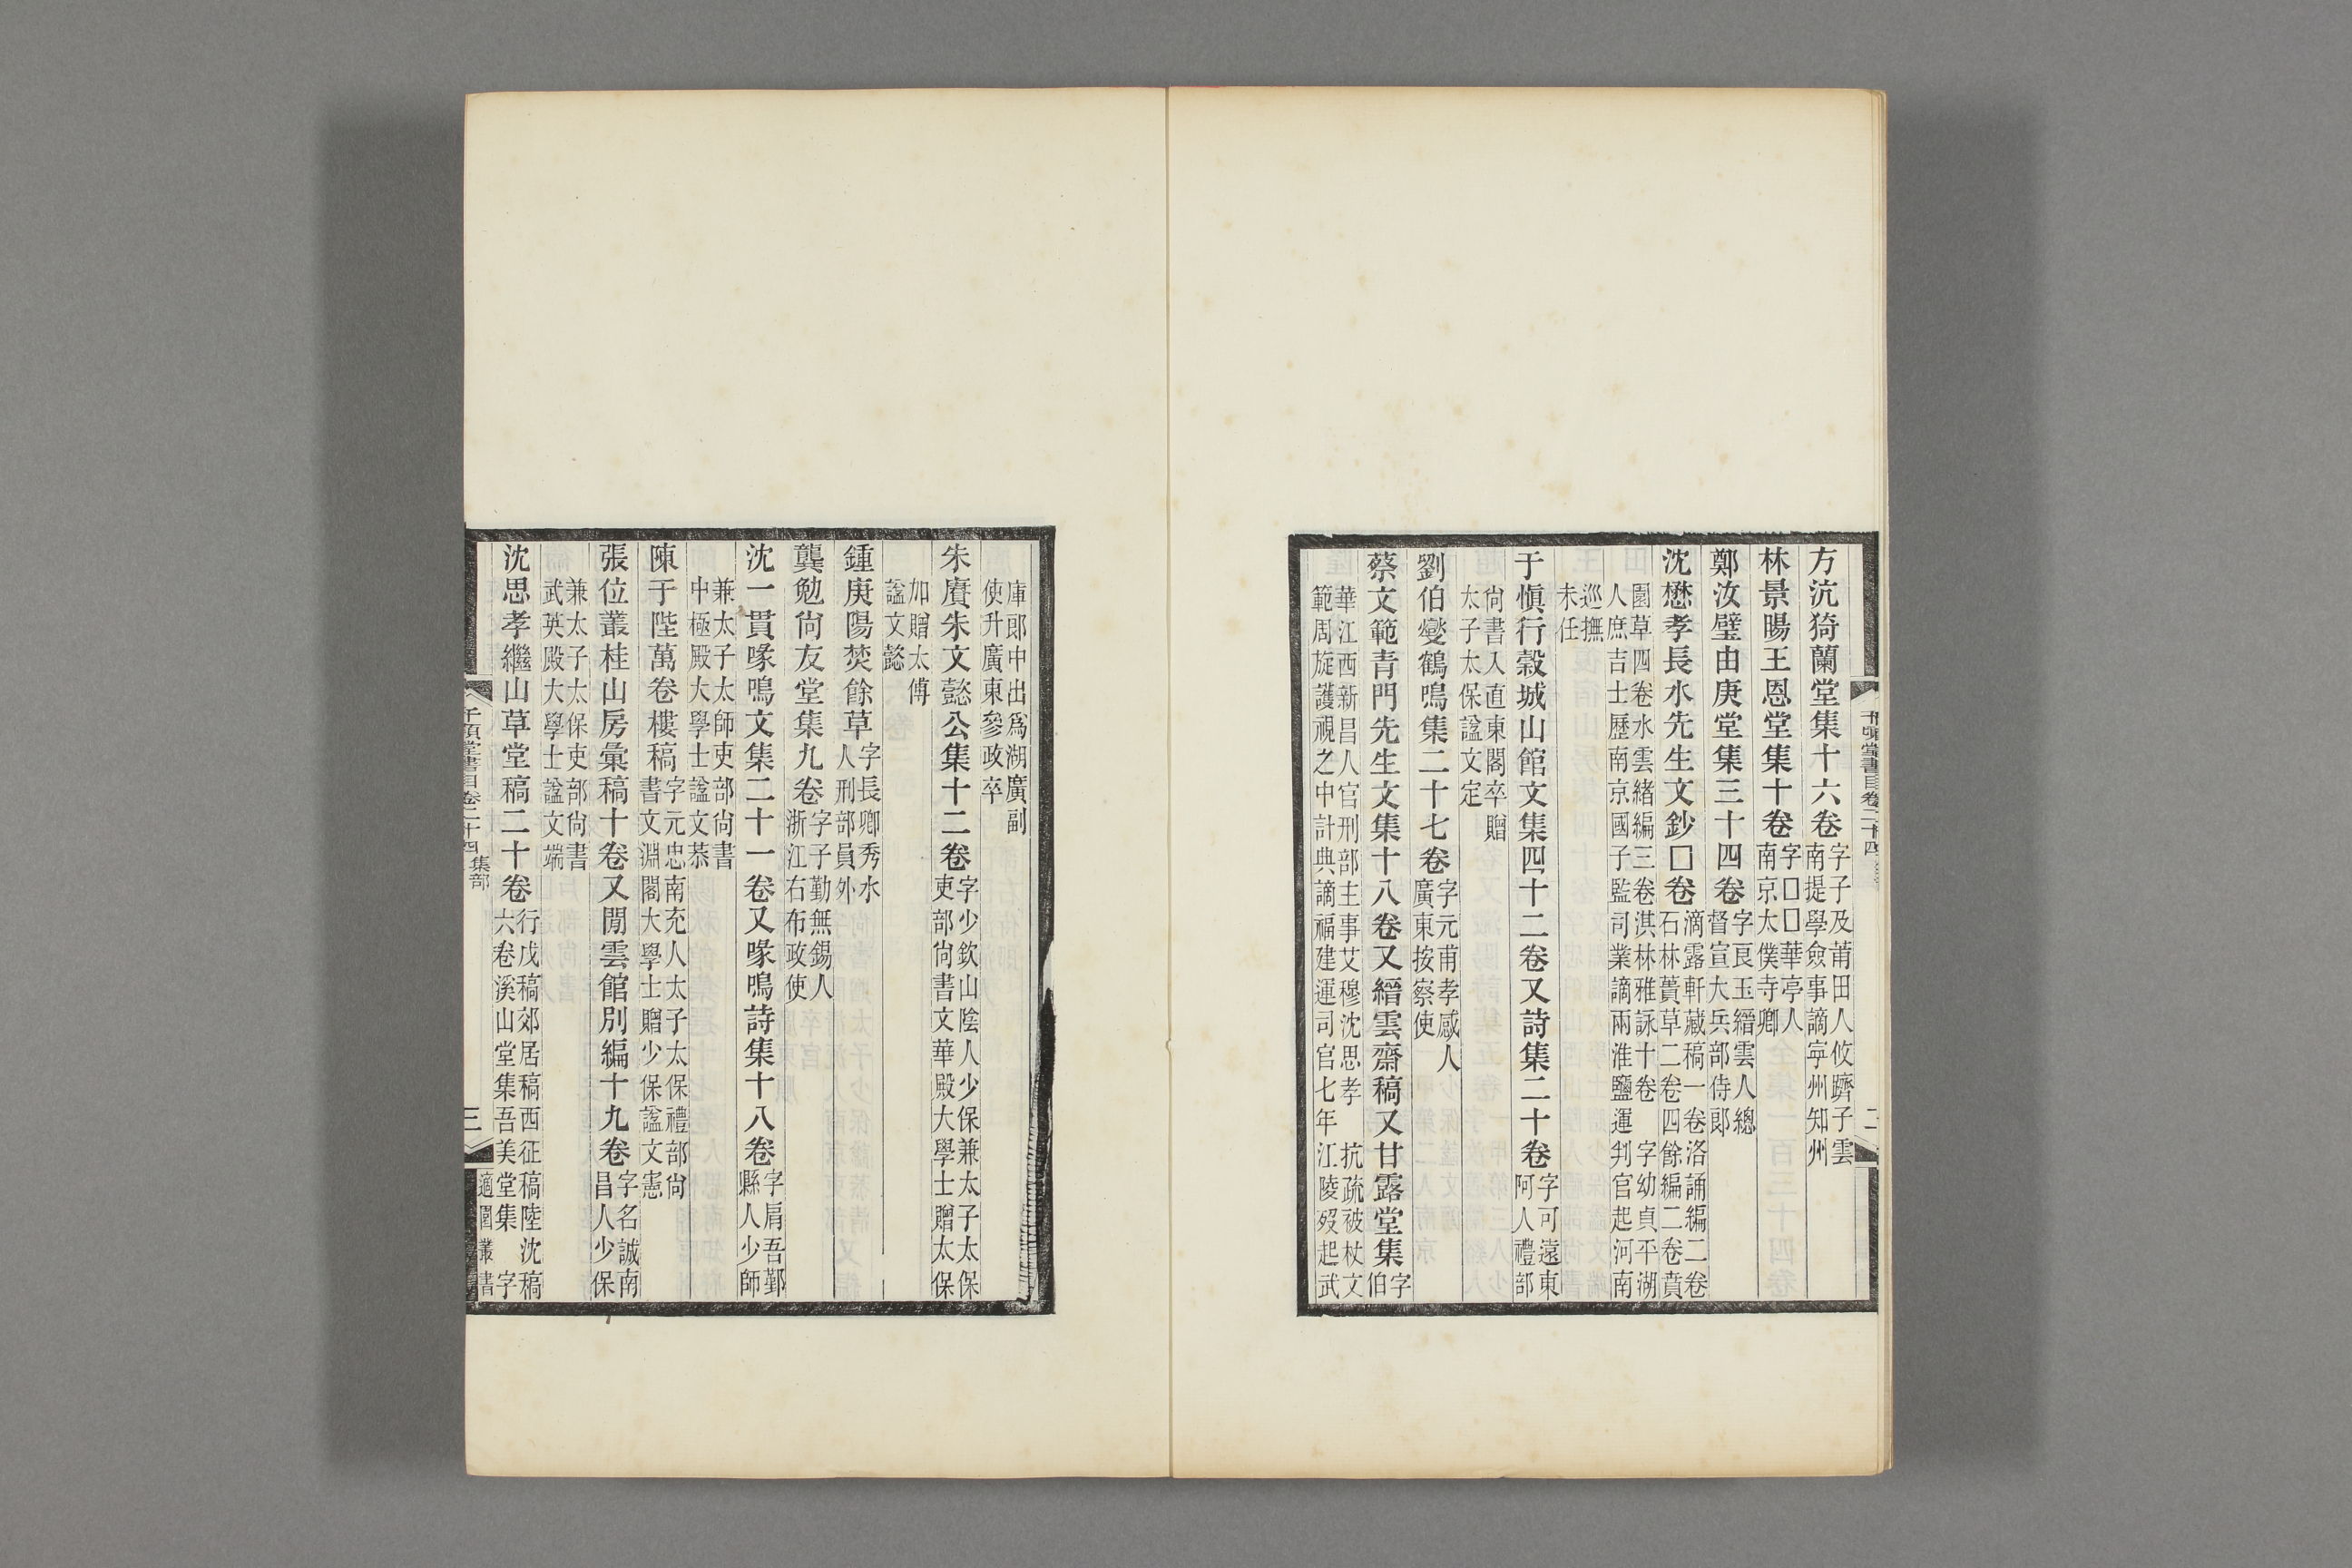 千頃堂書目卷二十四
二
方沆猗蘭堂集十六卷
字子及莆田人攸躋子雲
南提學僉事謫寜州知州
林景暘王恩堂集十卷
字□□華亭人
南京太僕寺卿
鄭汝璧由庚堂集三十四卷
字良玉縉雲人總
督宣大兵部侍郞
沈懋孝長水先生文鈔□卷
滴露軒藏稿一卷洛誦編二卷
石林蕢草二卷四餘編二卷賁
園草四卷水雲緒編三卷淇林雅詠十卷 字幼貞平湖
人庶吉士歷南京國子監司業謫兩淮鹽運判官起河南
巡撫
未任
于愼行穀城山館文集四十二卷又詩集二十卷
字可遠東
阿人禮部
尙書入直東閣卒贈
太子太保諡文定
劉伯燮鶴鳴集二十七卷
字元甫孝感人
廣東按察使
蔡文範青門先生文集十八卷又縉雲齋稿又甘露堂集
字
伯
華江西新昌人官刑部主事艾穆沈思孝 抗疏被杖文
範周旋護視之中計典謫福建運司官七年江陵歿起武
庫郞中出爲湖廣副
使升廣東參政卒
朱賡朱文懿公集十二卷
字少欽山陰人少保兼太子太保
吏部尙書文華殿大學士贈太保
加贈太傅
諡文懿
鍾庚陽焚餘草
字長卿秀水
人刑部員外
龔勉尙友堂集九卷
字子勤無錫人
浙江右布政使
沈一貫喙鳴文集二十一卷又喙鳴詩集十八卷
字肩吾鄞
縣人少師
兼太子太師吏部尙書
中極殿大學士諡文恭
陳于陛萬卷樓稿
字元忠南充人太子太保禮部尙
書文淵閣大學士贈少保諡文憲
張位叢桂山房彙稿十卷又閒雲館別編十九卷
字名誠南
昌人少保
兼太子太保吏部尙書
武英殿大學士諡文端
沈思孝繼山草堂稿二十卷
行戍稿郊居稿西征稿陸沈稿
六卷溪山堂集吾美堂集 字
千頃堂書目卷二十四 集部
三
適園叢書